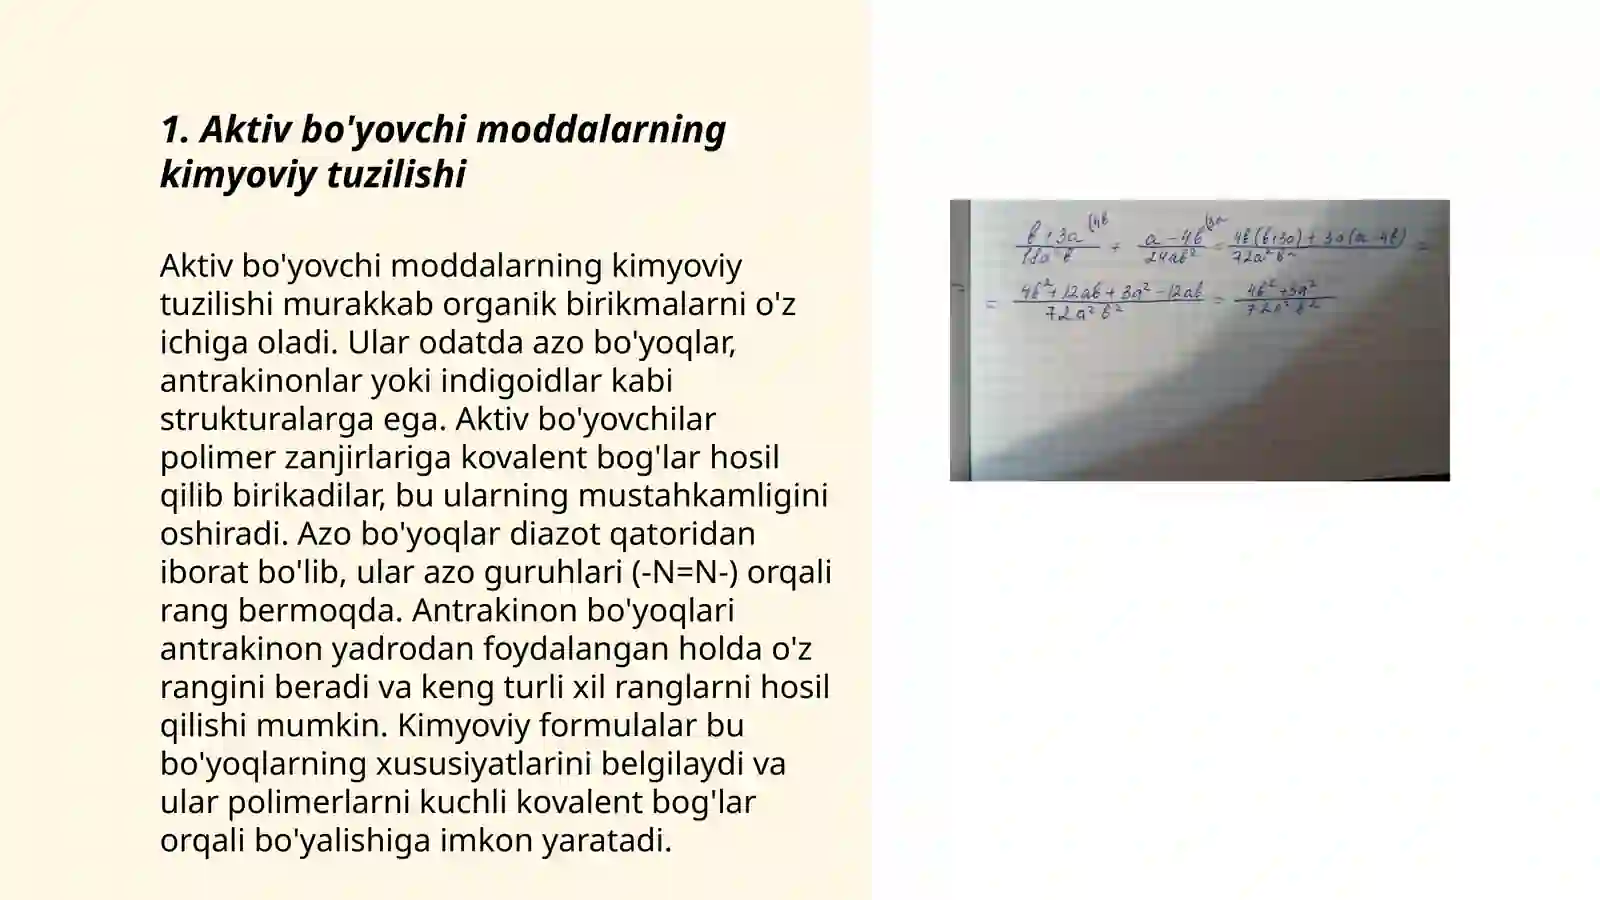 1. Aktiv bo'yovchi moddalarning
kimyoviy tuzilishi
Aktiv bo'yovchi moddalarning kimyoviy
tuzilishi murakkab organik birikmalarni o'z
ichiga oladi. Ular odatda azo bo'yoqlar,
antrakinonlar yoki indigoidlar kabi
strukturalarga ega. Aktiv bo'yovchilar
polimer zanjirlariga kovalent bog'lar hosil
qilib birikadilar, bu ularning mustahkamligini
oshiradi. Azo bo'yoqlar diazot qatoridan
iborat bo'lib, ular azo guruhlari (-N=N-) orqali
rang bermoqda. Antrakinon bo'yoqlari
antrakinon yadrodan foydalangan holda o'z
rangini beradi va keng turli xil ranglarni hosil
qilishi mumkin. Kimyoviy formulalar bu
bo'yoqlarning xususiyatlarini belgilaydi va
ular polimerlarni kuchli kovalent bog'lar
orqali bo'yalishiga imkon yaratadi.
a - 4b = 4b(b+3a) + 3a(a-4b) =
24ab² 72a²b²
= 4b² + 12ab + 3a² - 12ab = 4b² + 3a²
72a²b² 72a²b²